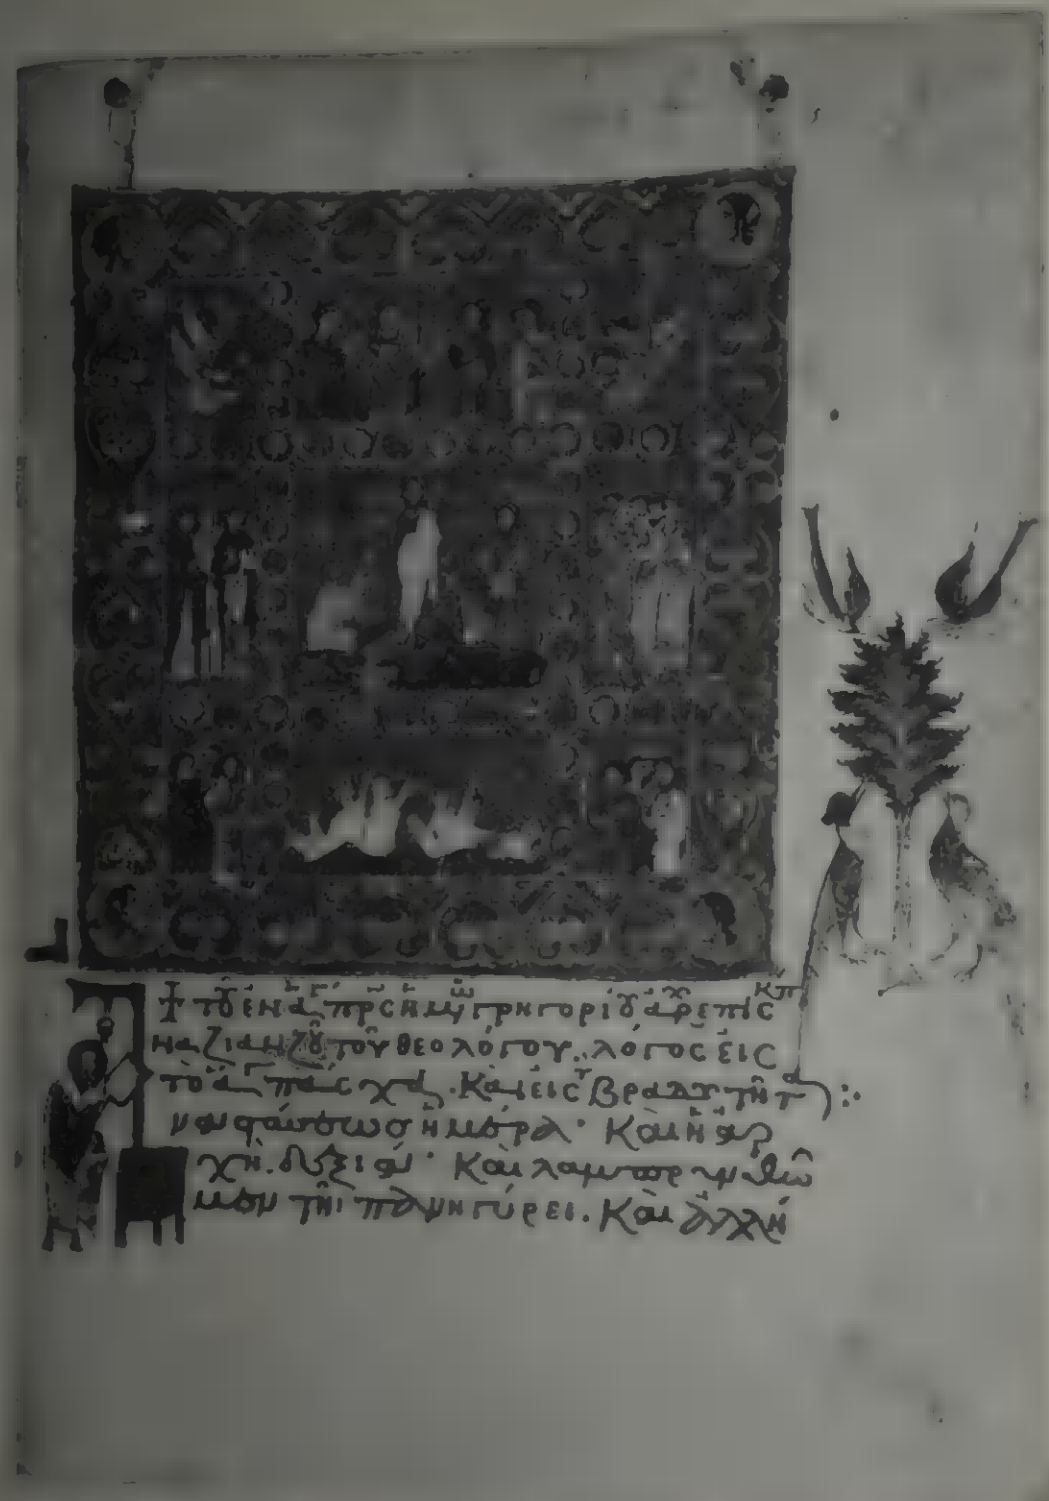 † τοῦ ἐν ἁ πρς ἡμῶ γρηγορίου ἀρχεπισκπ
ναζιανζοῦ τοῦ θεολόγου. λόγος εἰς
τὸ ἅ πάσχα. Καὶ εἰς βραδυτῆτα:
ἀναστάσεως ἡμέρα· Καὶ ἡ ἀρ
χὴ. δεξιά· Καὶ λαμπρυνθῶ
μεν τῆι πανηγύρει. Καὶ ἀλλή